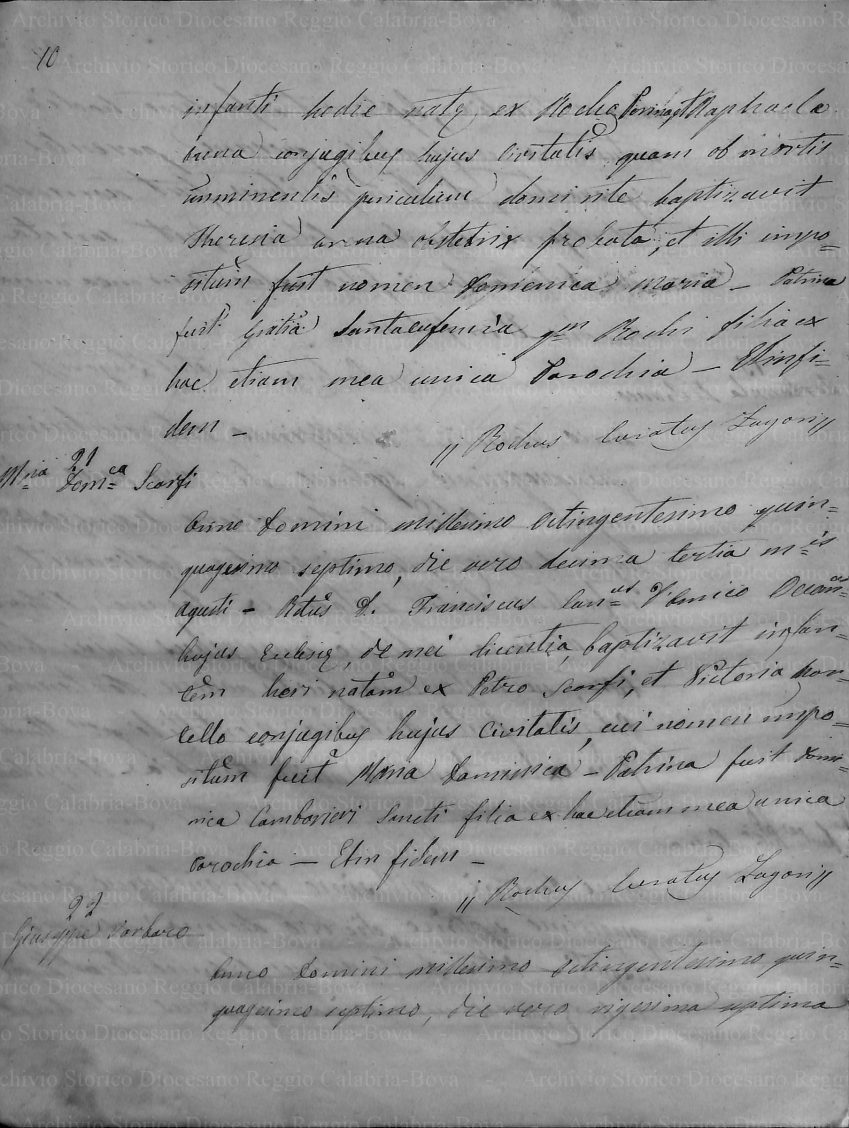 10
infanti hodie natę, ex Rocho et Raphaela
Arena conjugibus hujus Civitatis quam ob mortis
imminentis periculum domi rite baptizavit
Theresia Arena obstetrix probata, et illi impo=
situm fuit nomen Domenica Maria – Patrina
fuit Gratia Santaeufemia qm Rochi filia ex
hac etiam mea unica Parochia – Et in fi=
dem –
,, Rochus Curatus Zagari ,,
21
Mria Domca Scarfi
Anno Domini millesimo octingentesimo quin=
quagesimo septimo, die vero decima tertia mis
Agusti – Rdus D. Franciscus Canus
hujus Eclesię, de mei licentia, baptizavit infan=
tem heri natam ex Petro Scarfi, et Victoria
cello conjugibus hujus Civitatis, cui nomen impo=
situm fuit Maria Dominica – Patrina fuit Domi=
nica Cambarieri Sancti filia ex hac etiam mea unica
Parochia – Et in fidem –
,, Rochus Curatus Zagari ,,
22
Giuseppe Barbaro
Anno Domini millesimo octingentesimo quin=
quagesimo septimo, die vero vigesima septima
Archivio Storico Diocesano Reggio Calabria-Bova